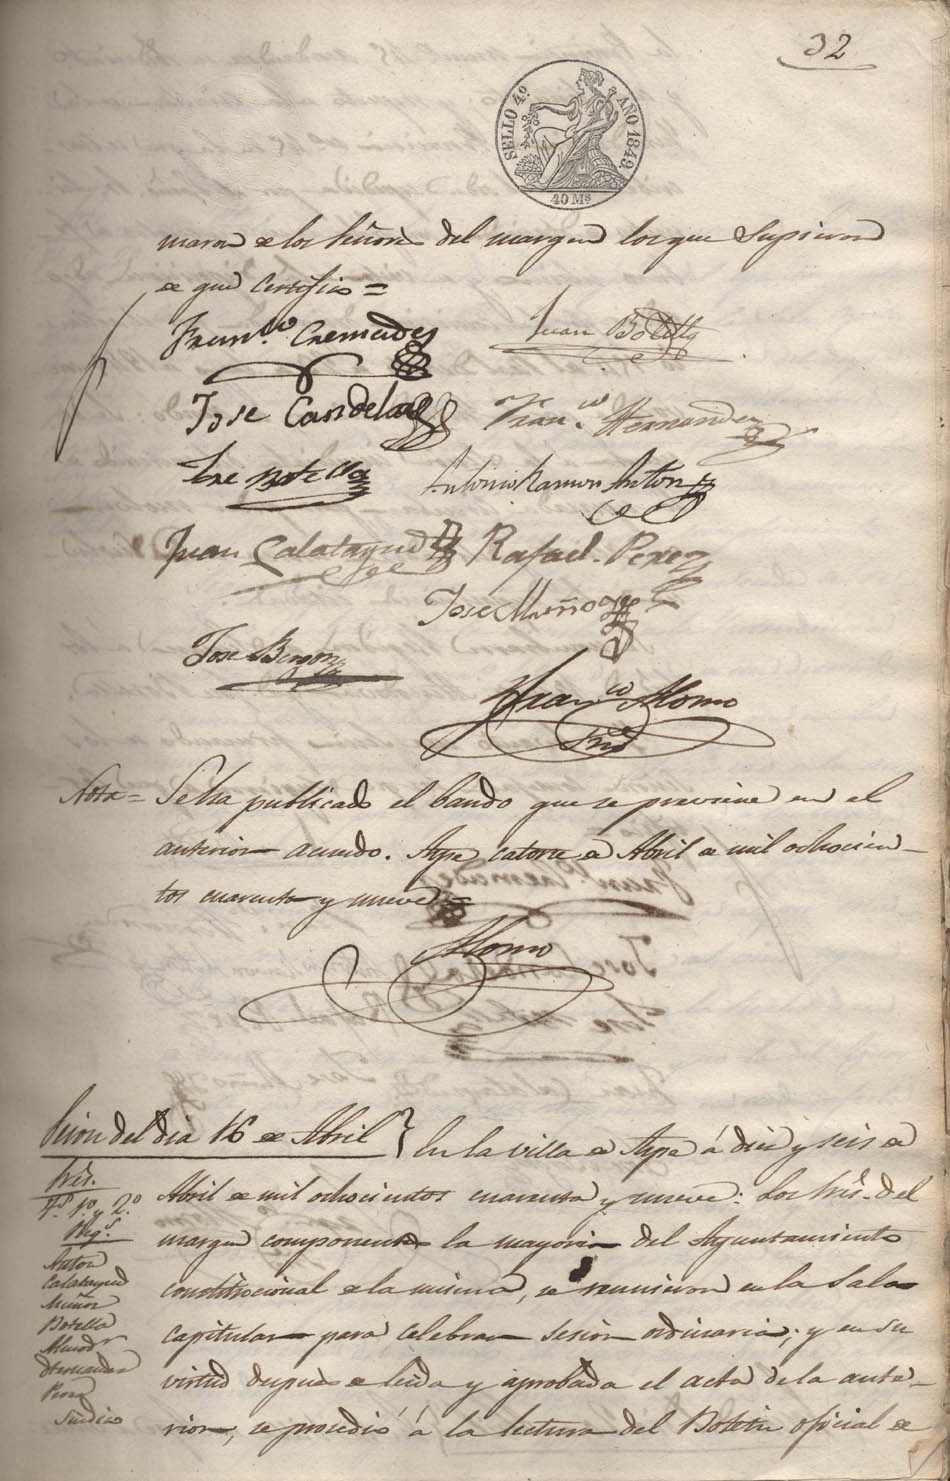 32
SELLO 4.º AÑO 1849.
40 Ms
maron de los Señores del margen los que Supieron
de que Certifico =
Fran.co Cremades
Juan Botella
Jose Candela
Fran.co Hernandez
Jose Botella
Antonio Ramon Anton
Juan Calatayud
Rafael Perez
Jose Muñoz
Jose
Fran.co Alonso
Srio
Nota = Se ha publicado el bando que se previene en el
anterior acuerdo. Aspe catorce de Abril de mil ochocien-
tos cuarenta y nueve =
Alonso
Sesion del dia 16 de Abril } En la villa de Aspe á diez y seis de
Abril de mil ochocientos cuarenta y nueve: Los Sres. del
margen componentes la mayoria del Ayuntamiento
constitucional de la misma, se reunieron en la Sala
Capitular para celebrar sesion ordinaria; y en su
virtud despues de leida y aprobada el acta de la ante-
rior, se procedió á la lectura del Boletin oficial de
Sres.
1.º y 2.º
Reg.s
Anton
Calatayud
Muñoz
Botella
Hernandez
Perez
Sindico